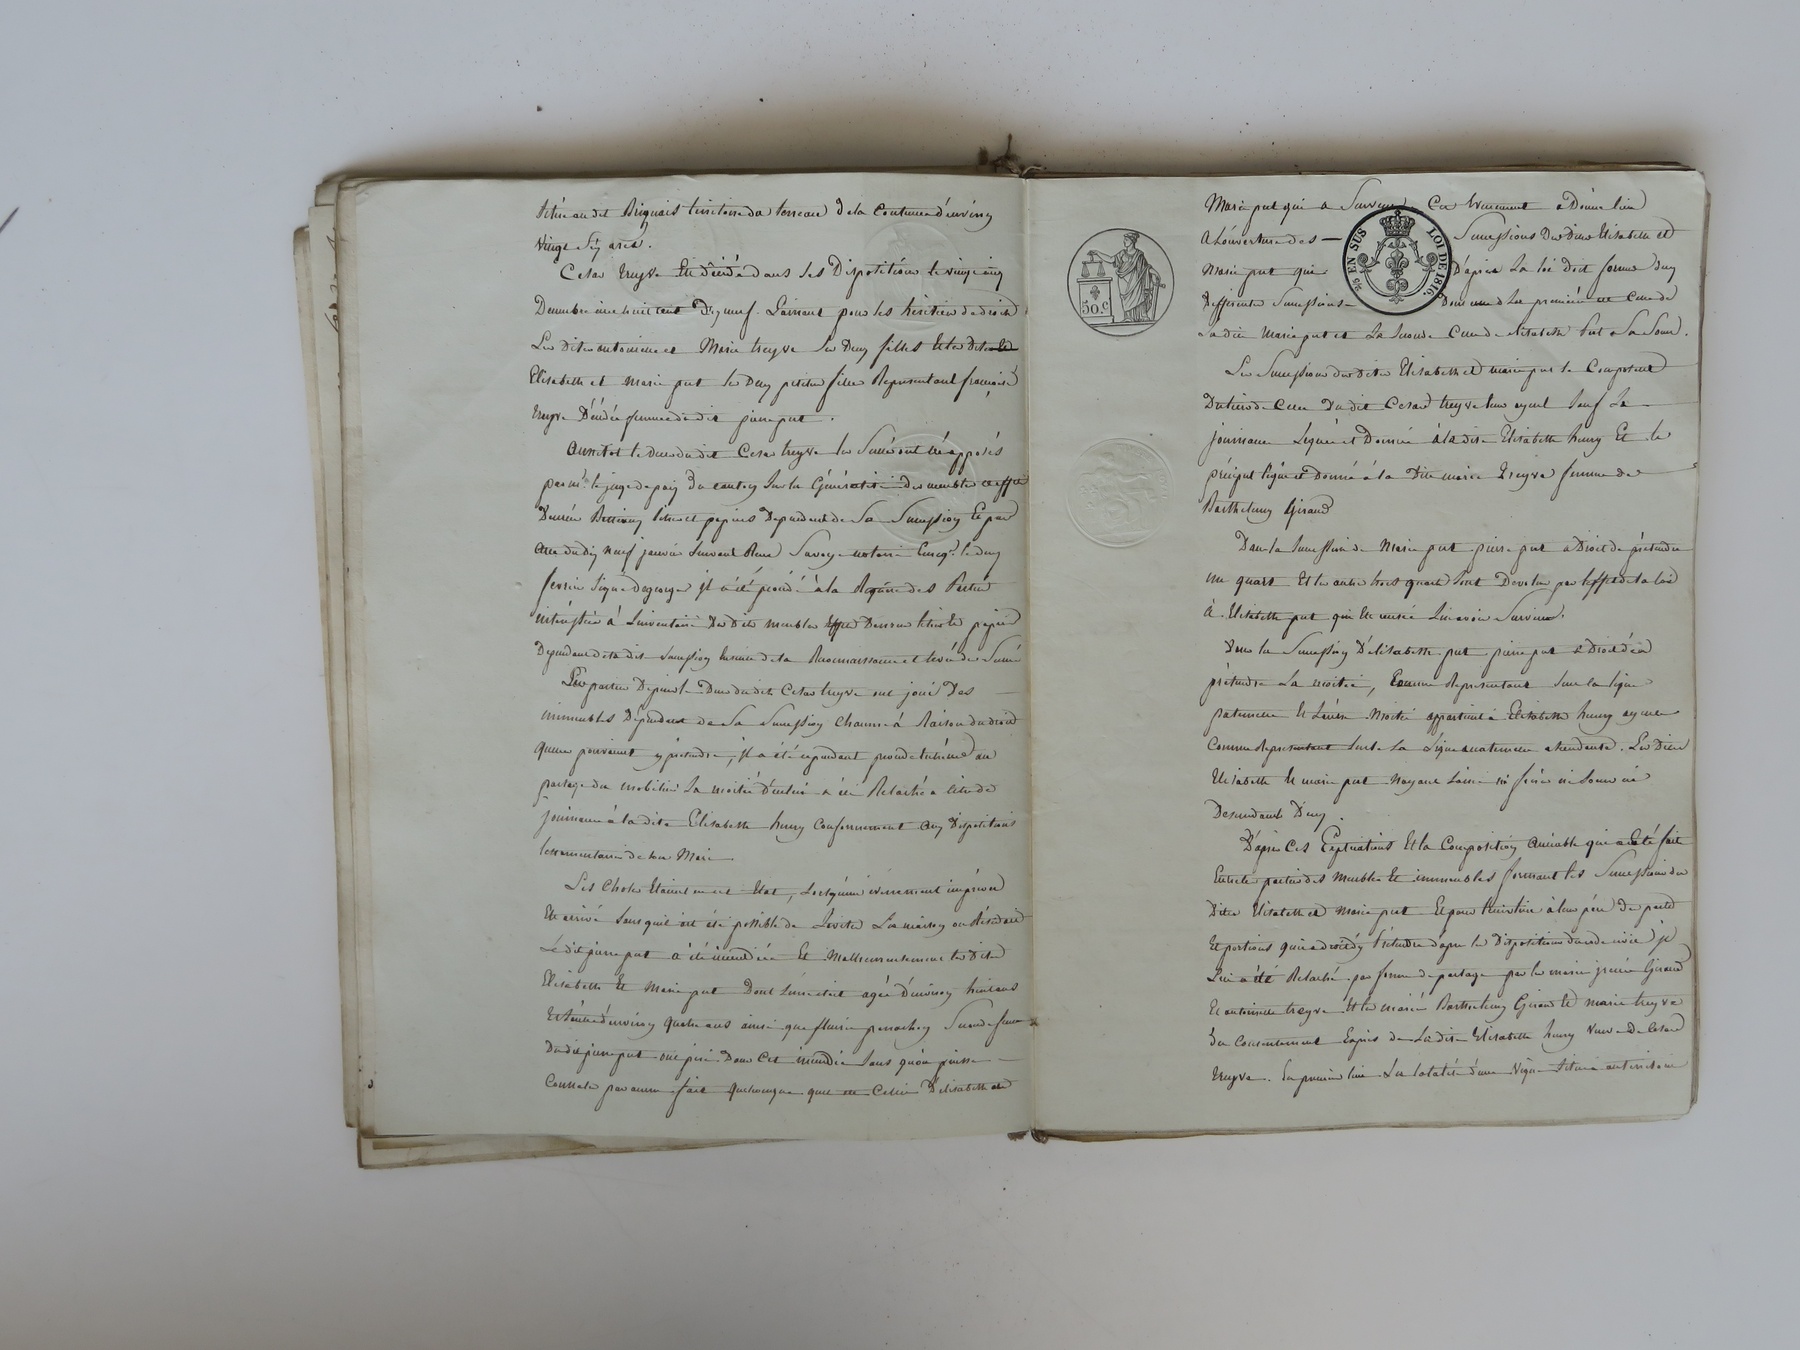 située audit Brignais territoire du terreau de la Contenue d'environ
vingt six ares.
Cesar Treyve Est décédé dans ces Dispositions le vingt cinq
Decembre mil huit cent Dix neuf. Laissant pour ses héritiers de droit
Les dites antoinette et Marie treyve ses Deux filles Et les dites
Elisabeth et marie put ses Deux petites filles Representant françoise
treyve Décédée femme dudit pierre put.
Aussitot le Deces du dit Cesar treyve les Scellés ont été apposés
par mr. le juge de paix du canton Sur la Généralité des meubles effets
Denrées titres et papiers Dependant de Sa Succession Et par
acte du dix neuf janvier Suivant Reçu Savoye notaire Enreg. le deux
fevrier Signé il a été procédé à la Requête des Parties
intéressées à l'inventaire Des Dits meubles Effets Denrées titres Et papiers
Dependant de la dite Succession Ensuite de la Reconnaissance et levée des Scellés
Les parties Depuis le Deces du dit Cesar treyve ont joui Des
immeubles Dépendant de Sa Succession Chacune à Raison du droit
qu'elles pouvaient y pretendre, il a été cependant procédé entr'elles au
partage du mobilier La moitié d'celui a été Relachée à titre de
jouissance à la dite Elisabeth henry Conformement aux Dispositions
testamentaires de son Mari
Les Choses Etaient en cet Etat, Lorsqu'un évenement imprévu
Est arrivé Sans qu'il ait été possible de l'eviter La maison ou Résidait
Le dit pierre put a été incendiée Et Malheureusement les Dites
Elisabeth Et Marie put Dont l'une était agée d'environ huit ans
Et l'autre d'environ quatre ans ainsi que Seconde femme
Du dit pierre put ont péri Dans Cet incendie Sans qu'on puisse
Connaitre par aucun fait quelconque quelle est Celle D'elisabeth ou
50.C
EN SUS LOI DE 1816.
Marie put qui a Survécu. Cet Evenement a Donné lieu
A L'ouverture des — Successions Des Dites Elisabeth et
Marie put qui D'après La loi Doit former Deux
Differentes Successions Dont la première est Celle de
La dite Marie put et La Seconde Celle de elisabeth Put Sa Sœur.
Les Successions des dites Elisabeth et marie put Se Composent
Du tiers de Celle Du dit Cesar treyve leur ayeul Sauf La
jouissance Leguée et Donnée à la dite Elisabeth henry Et le
préciput légué et Donné à la Dite marie treyve femme de
Barthelemy Giraud
Dans la Succession de Marie put pierre put a Droit de prétendre
un quart Et les autres trois quarts Sont Devolus par l'effet de la loi
à Elisabeth put qui Est censée Lui avoir Survécu.
Dans la Succession D'élisabeth put pierre put a Droit d'en
prétendre La moitié, Comme Representant Seul la ligne
paternelle Et L'autre Moitié appartient à Elisabeth henry ayeule
Comme Representant Seule La ligne maternelle attendu que Les Dites
Elisabeth Et marie put N'ayant Laissé ni frères ni Sœurs ni
Descendants D'eux.
D'après Ces Explications Et la Composition amiable qui a été faite
Entre les parties des Meubles Et immeubles formant les Successions des
Dites Elisabeth et Marie put Et pour tenir lieu à leur père De parts
Et portions qu'il a droit d'y Prétendre d'après les Dispositions du code civil, je
Lui a été Relaché par forme de partage par les mariés Giraud
Et antoinette treyve Et les mariés Barthelemy Giraud Et marie treyve
Du Consentement Exprès de La dite Elisabeth henry Veuve De Cesar
treyve. En premier lieu La totalité d'une Vigne Située au territoire